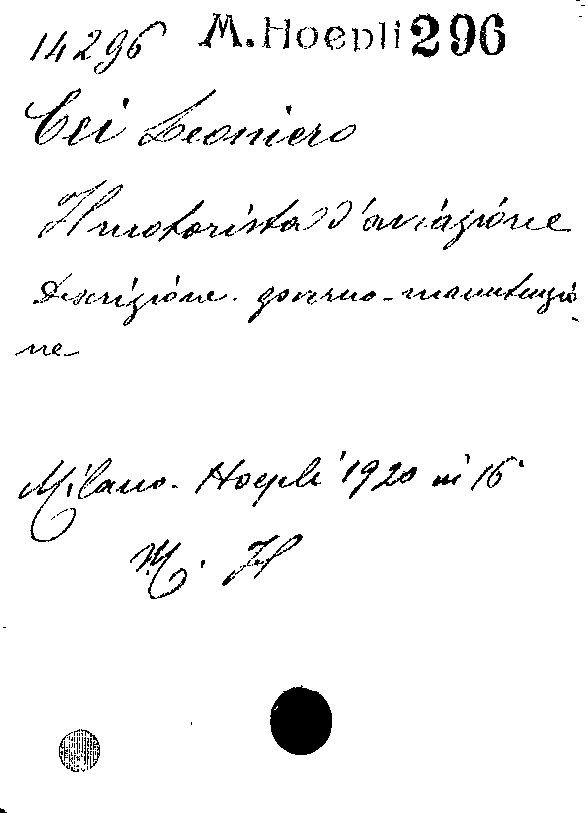 14296 M. Hoepli 296
Cei Leoniero
Il motorista d'aviazione
Descrizione. governo-manutenzio
ne
Milano. Hoepli 1920 in 16º
M. H